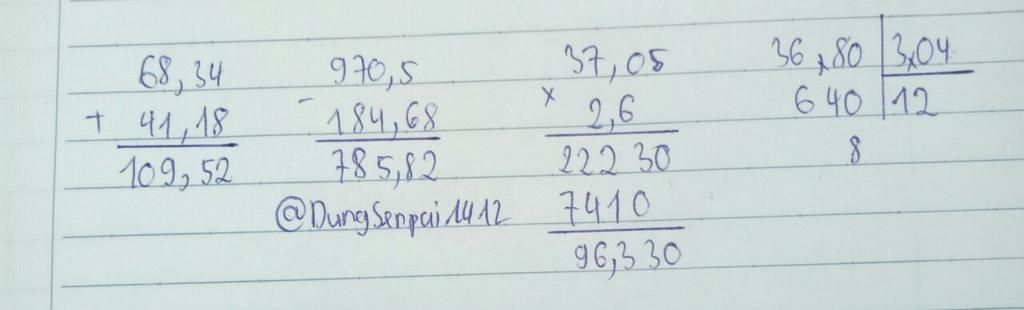 68,34 970,5 37,05 36,80 3,04
+ 41,18 - 184,68 x 2,6 640 12
109,52 785,82 22230 8
@DungSenpai1412 7410
96,330